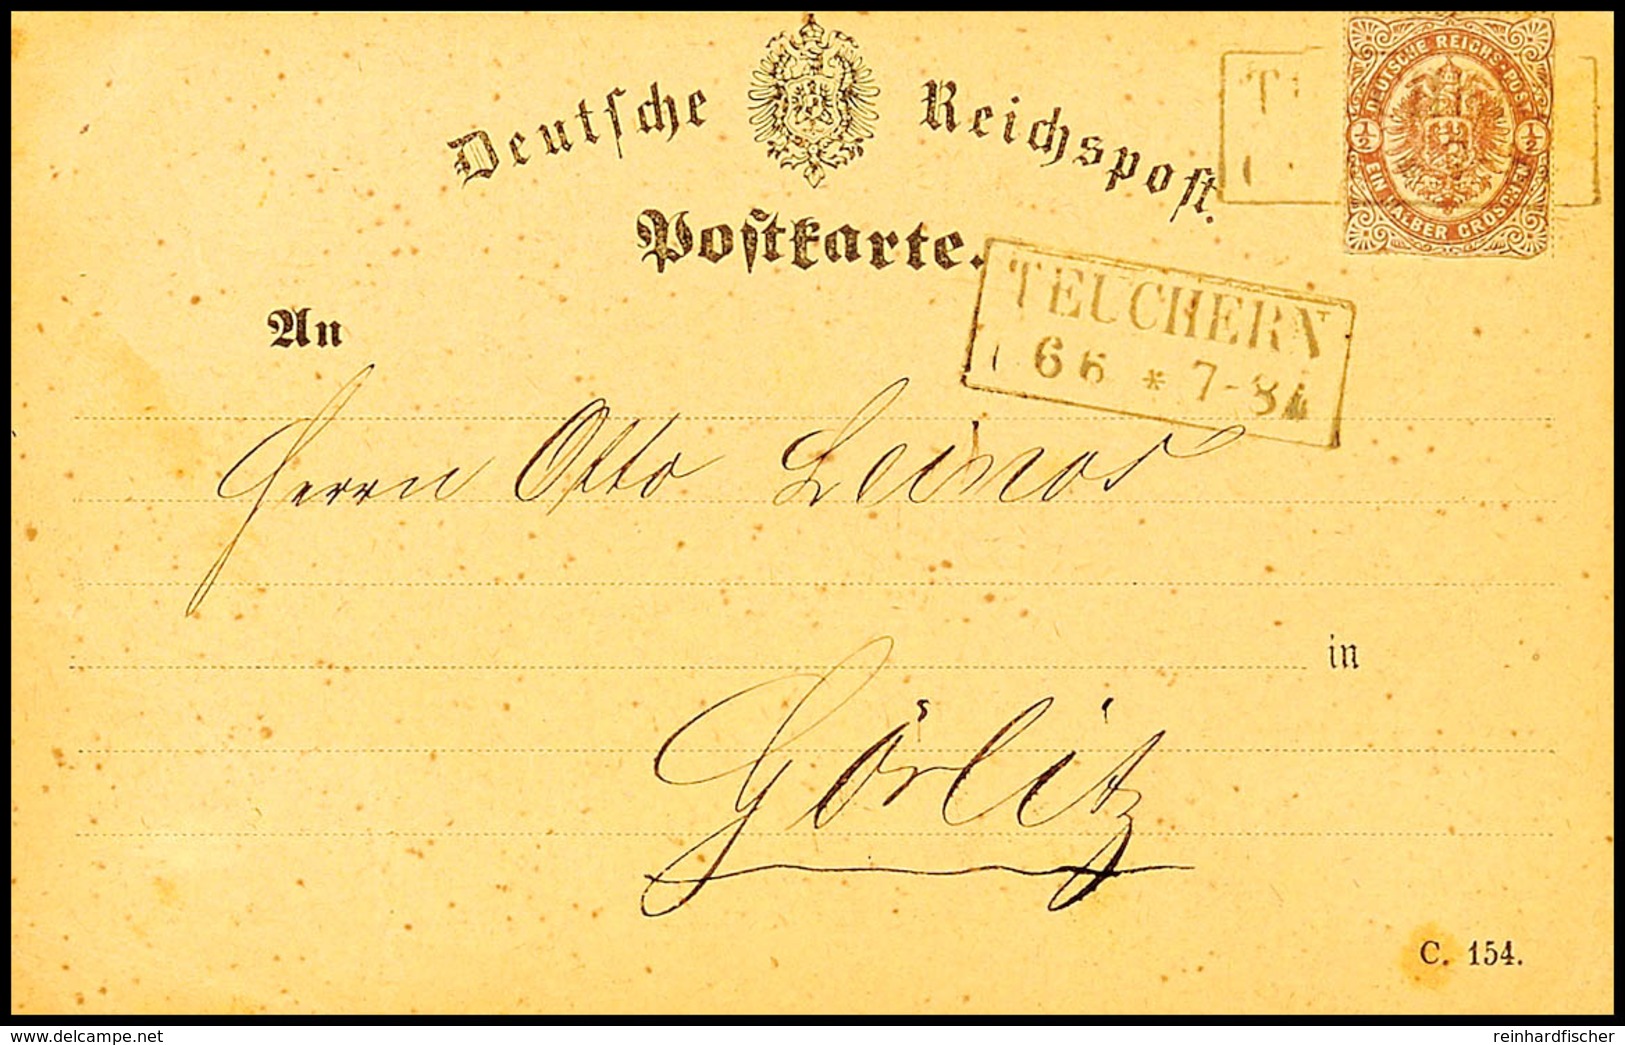 Deutsche Reichspost.
DEUTSCHE REICHS-POST
½ ½
EIN HALBER GROSCHEN
Postkarte.
TEUCHERN
6 6 * 7-8
An
Herrn Otto
in
Görlitz
C. 154.
www.delcampe.net
reinhardfischer